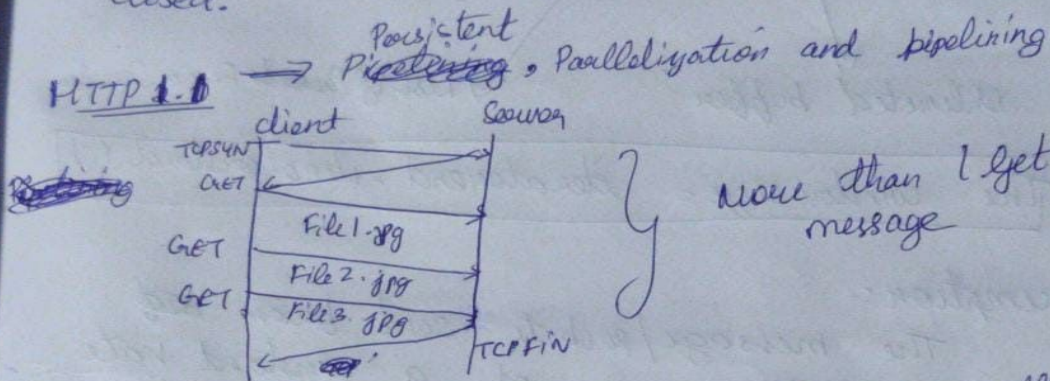 closed.
HTTP 1.1 → Persistent, Parallelization and pipelining
client Server
TCPSYN
GET
File1.jpg
GET
File2.jpg
GET
File3.jpg
TCPFIN
More than 1 Get
message